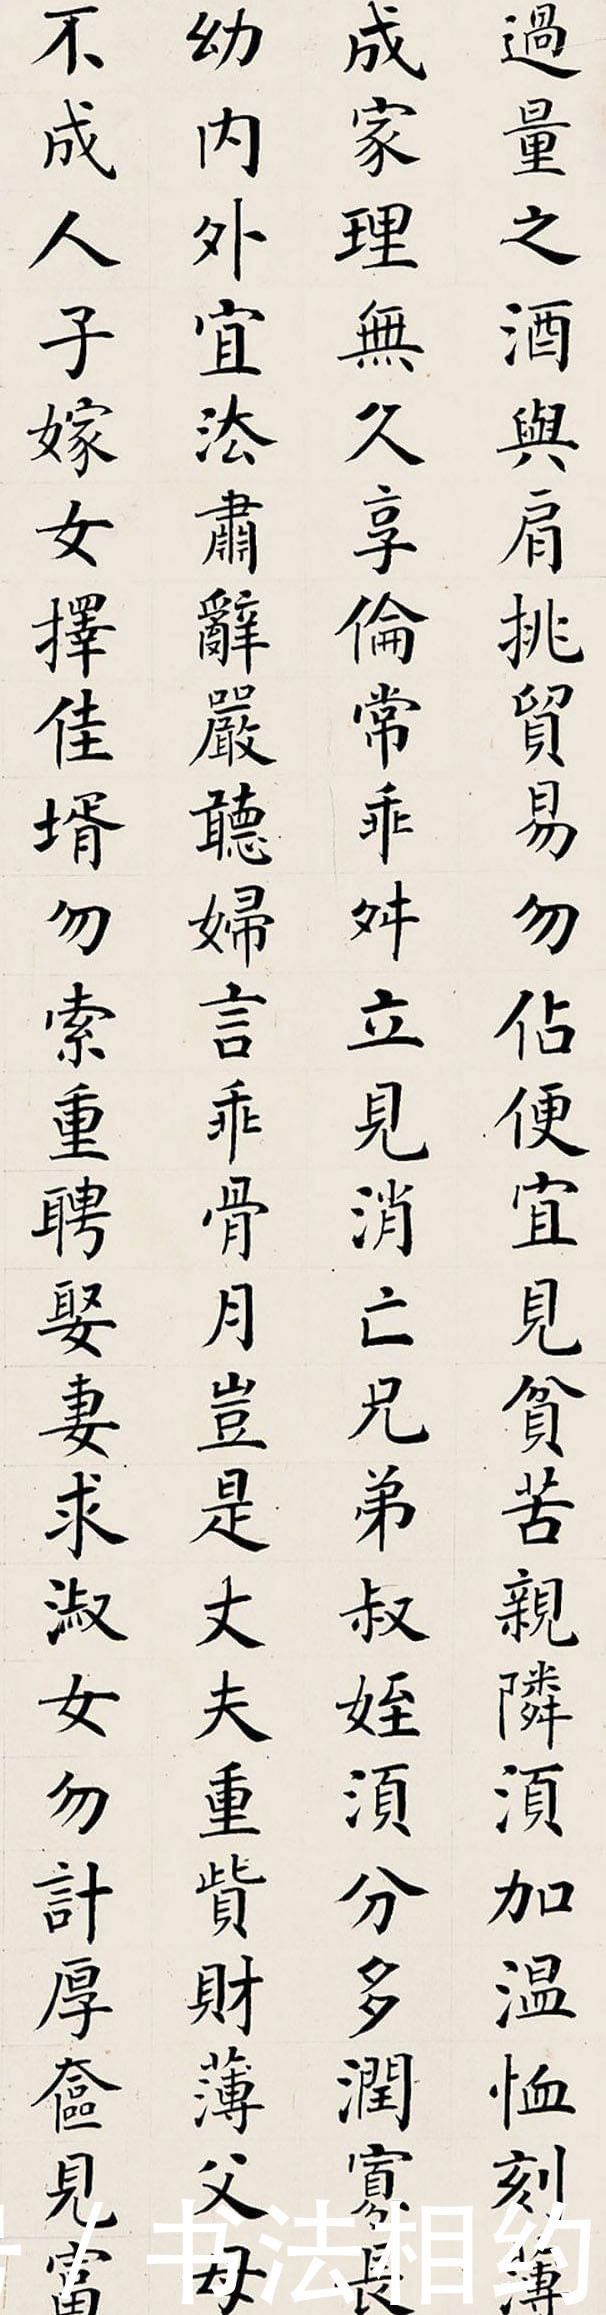 過量之酒與肩挑貿易勿佔便宜見貧苦親隣須加温恤刻薄
成家理無久享倫常乖舛立見消亡兄弟叔姪須分多潤寡長
幼内外宜法肅辭嚴聽婦言乖骨月豈是丈夫重貲財薄父母
不成人子嫁女擇佳壻勿索重聘娶妻求淑女勿計厚奩見富
号/书法相约